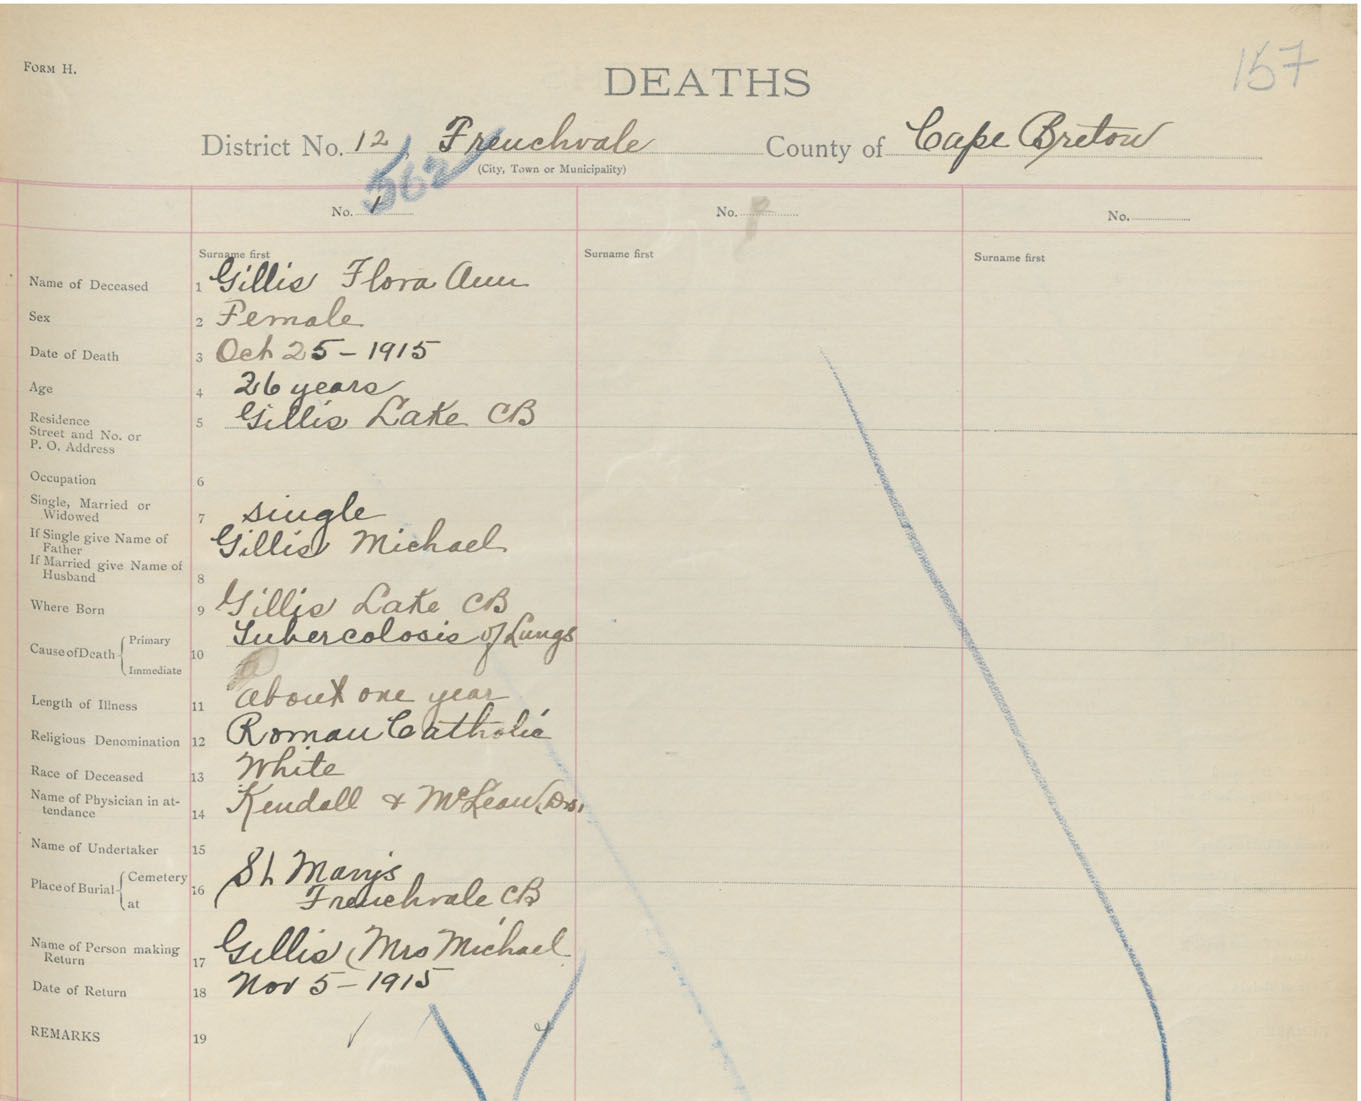 FORM H.
157
DEATHS
District No. 12 Frenchvale County of Cape Breton
562
(City, Town or Municipality)
No. 1 No. No.
Surname first Surname first Surname first
Name of Deceased 1 Gillis Flora Ann
Sex 2 Female
Date of Death 3 Oct 25 - 1915
Age 4 26 years
Residence
Street and No. or
P. O. Address 5 Gillis Lake CB
Occupation 6
Single, Married or
Widowed 7 single
If Single give Name of
Father Gillis Michael
If Married give Name of
Husband 8
Where Born 9 Gillis Lake CB
Cause of Death Primary Tubercolosis of Lungs
10
Immediate
Length of Illness 11 about one year
Religious Denomination 12 Roman Catholic
Race of Deceased 13 White
Name of Physician in at-
tendance 14 Kendall & McLean (Drs.
Name of Undertaker 15
Place of Burial Cemetery 16 St Marys
at Frenchvale CB
Name of Person making
Return 17 Gillis (Mrs Michael
Date of Return 18 Nov 5 - 1915
REMARKS 19